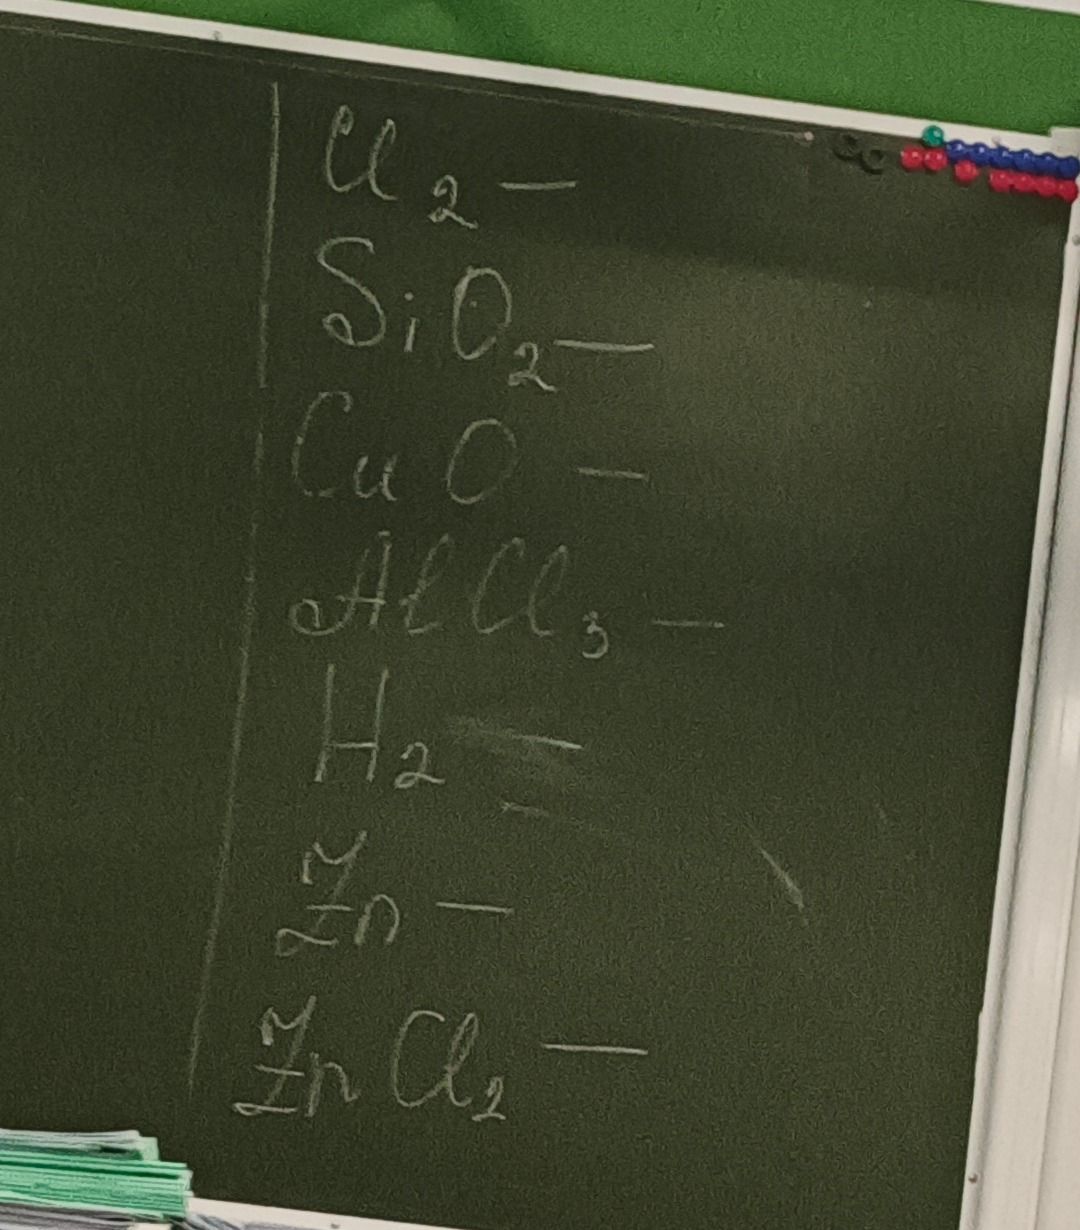 Cl₂ —
SiO₂ —
CuO —
AlCl₃ —
H₂ —
Zn —
ZnCl₂ —